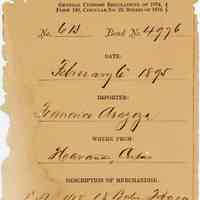 GENERAL CUSTOMS REGULATIONS OF 1874,
FORM 140, CIRCULAR NO. 23, SERIES OF 1876.
No. 613 Bond No. 4996
DATE:
February 6 1895
IMPORTER:
Francisco Arazoza
WHERE FROM:
Havana, Cuba
DESCRIPTION OF MERCHANDISE.